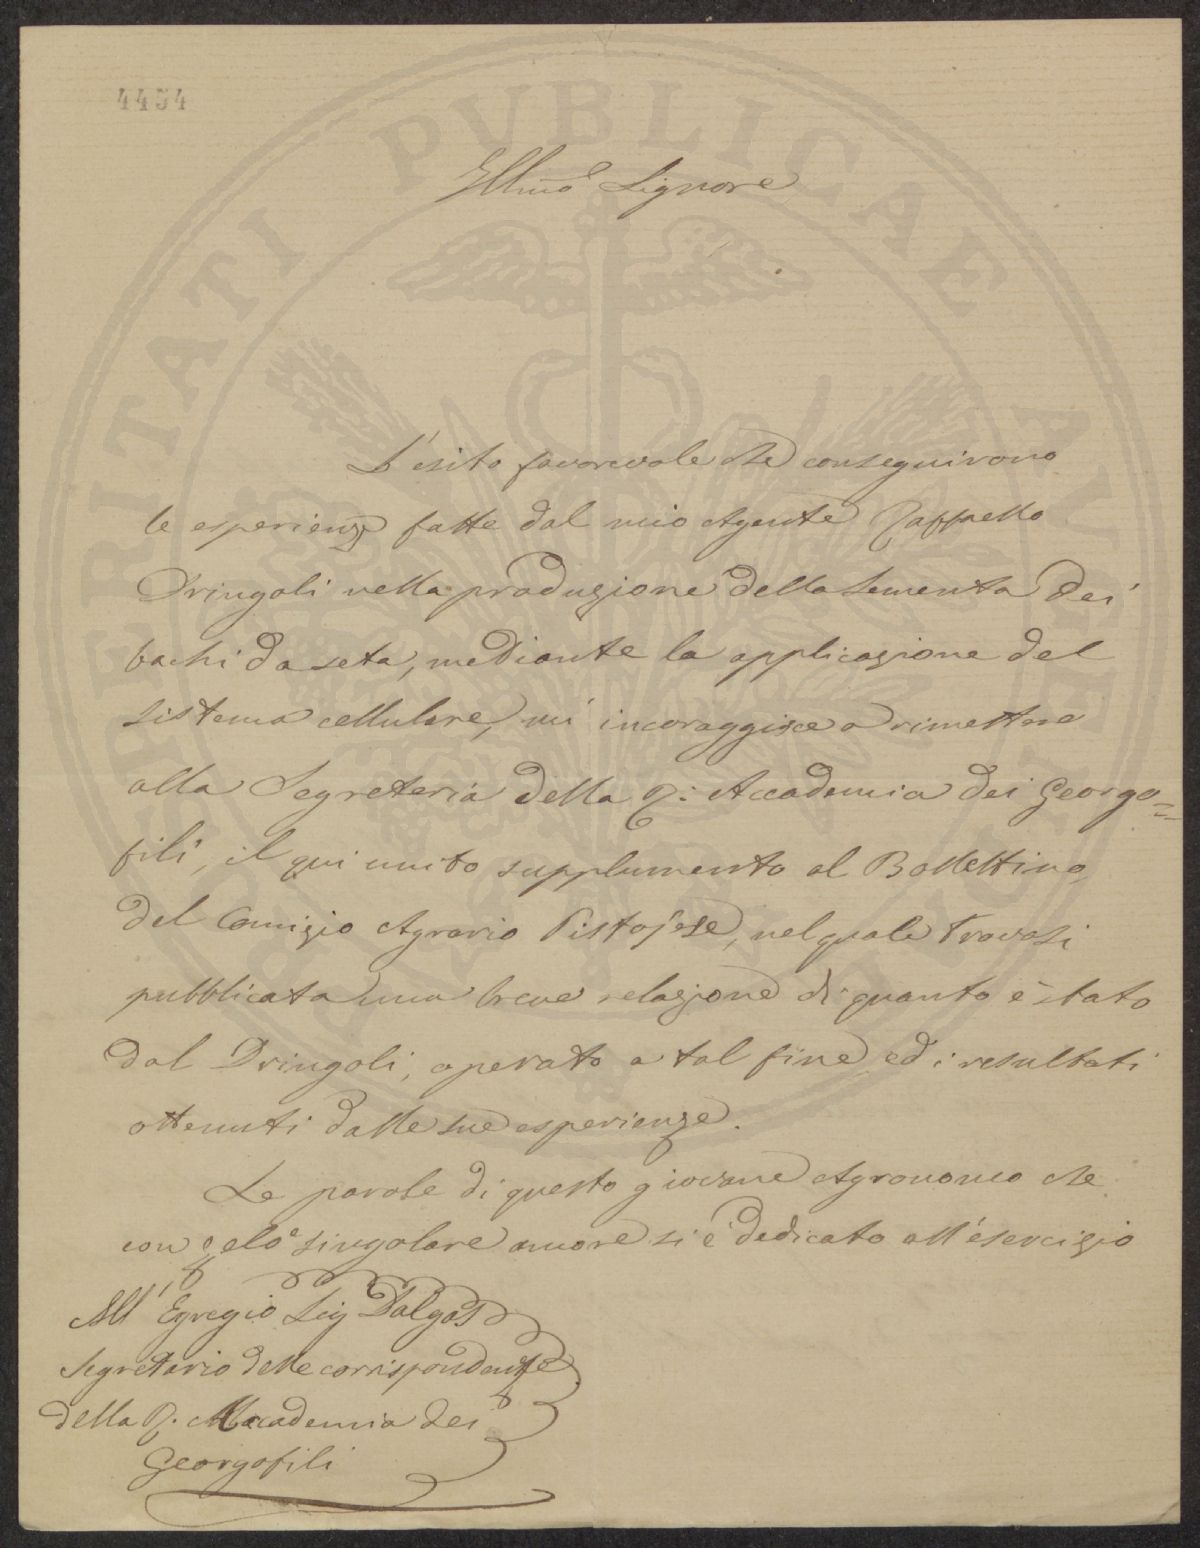 4454
PROSPERITATI PUBLICAE AUGENDAE
Illmo Signore
L'esito favorevole che conseguirono
le esperienze fatte dal mio Agente Raffaello
Dringoli nella produzione della Sementa dei
bachi da seta, mediante la applicazione del
sistema cellulare, mi incoraggisce a rimettere
alla Segreteria della R: Accademia dei Georgo=
fili, il qui unito supplumento al Bollettino
del Comizio Agrario Pistojese, nel quale trovasi
pubblicata una breve relazione di quanto è stato
dal Dringoli, operato a tal fine ed i resultati
ottenuti dalle sue esperienze.
Le parole di questo giovane Agronomo che
con zelo singolare amore si è dedicato all'esercizio
All' Egregio Sig Dalgas
Segretario delle corrispondenze
della R. Accademia dei
Georgofili